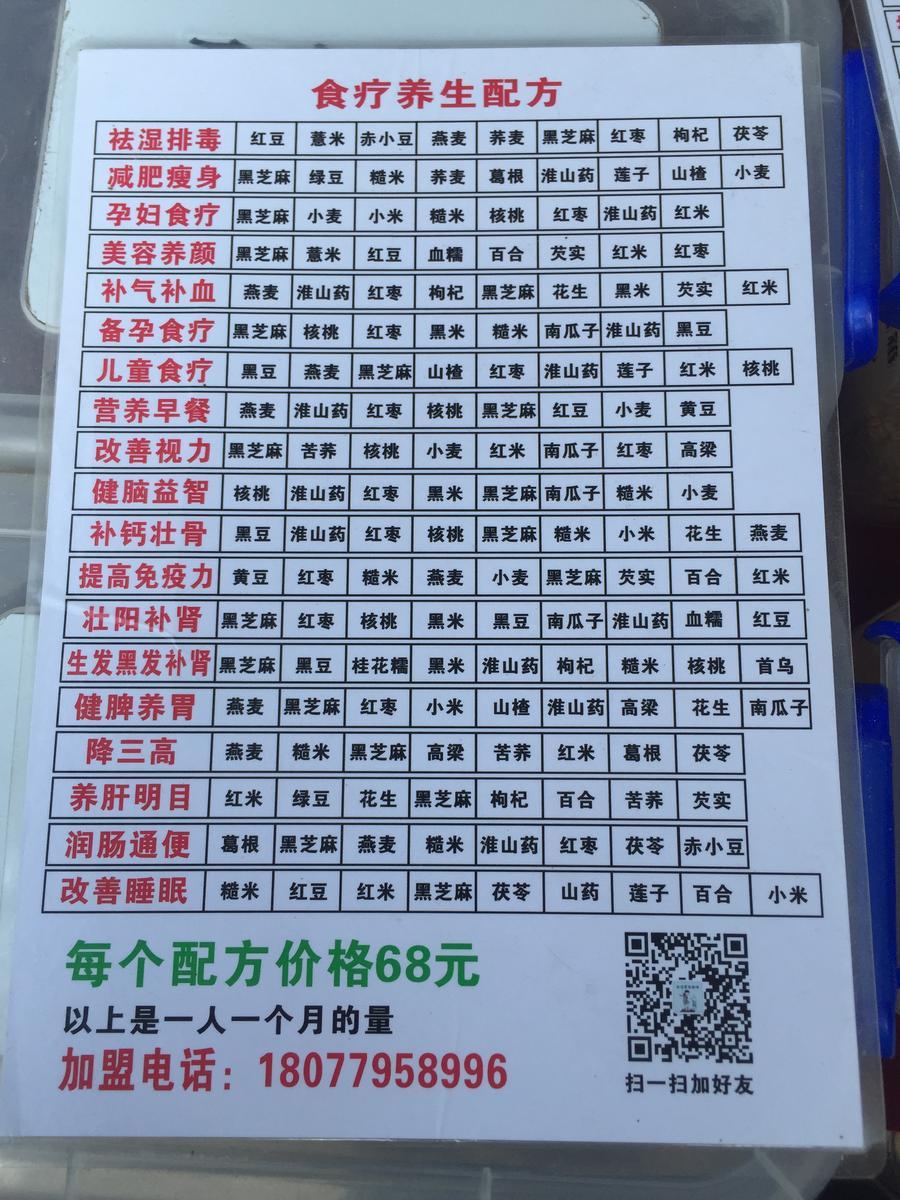 食疗养生配方
祛湿排毒 红豆 薏米 赤小豆 燕麦 荞麦 黑芝麻 红枣 枸杞 茯苓
减肥瘦身 黑芝麻 绿豆 糙米 荞麦 葛根 淮山药 莲子 山楂 小麦
孕妇食疗 黑芝麻 小麦 小米 糙米 核桃 红枣 淮山药 红米
美容养颜 黑芝麻 薏米 红豆 血糯 百合 芡实 红米 红枣
补气补血 燕麦 淮山药 红枣 枸杞 黑芝麻 花生 黑米 芡实 红米
备孕食疗 黑芝麻 核桃 红枣 黑米 糙米 南瓜子 淮山药 黑豆
儿童食疗 黑豆 燕麦 黑芝麻 山楂 红枣 淮山药 莲子 红米 核桃
营养早餐 燕麦 淮山药 红枣 核桃 黑芝麻 红豆 小麦 黄豆
改善视力 黑芝麻 苦荞 核桃 小麦 红米 南瓜子 红枣 高梁
健脑益智 核桃 淮山药 红枣 黑米 黑芝麻 南瓜子 糙米 小麦
补钙壮骨 黑豆 淮山药 红枣 核桃 黑芝麻 糙米 小米 花生 燕麦
提高免疫力 黄豆 红枣 糙米 燕麦 小麦 黑芝麻 芡实 百合 红米
壮阳补肾 黑芝麻 红枣 核桃 黑米 黑豆 南瓜子 淮山药 血糯 红豆
生发黑发补肾 黑芝麻 黑豆 桂花糯 黑米 淮山药 枸杞 糙米 核桃 首乌
健脾养胃 燕麦 黑芝麻 红枣 小米 山楂 淮山药 高梁 花生 南瓜子
降三高 燕麦 糙米 黑芝麻 高梁 苦荞 红米 葛根 茯苓
养肝明目 红米 绿豆 花生 黑芝麻 枸杞 百合 苦荞 芡实
润肠通便 葛根 黑芝麻 燕麦 糙米 淮山药 红枣 茯苓 赤小豆
改善睡眠 糙米 红豆 红米 黑芝麻 茯苓 山药 莲子 百合 小米
每个配方价格68元
以上是一人一个月的量
加盟电话：18077958996
扫一扫加好友